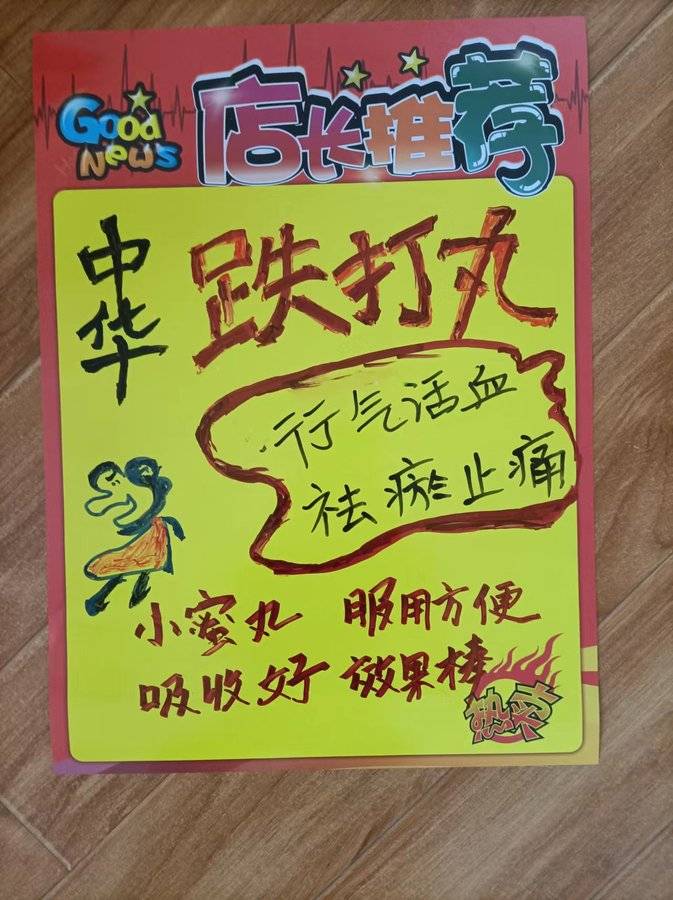 Good
News
店长推荐
中华
跌打丸
行气活血
祛瘀止痛
小蜜丸 服用方便
吸收好 效果棒
热卖